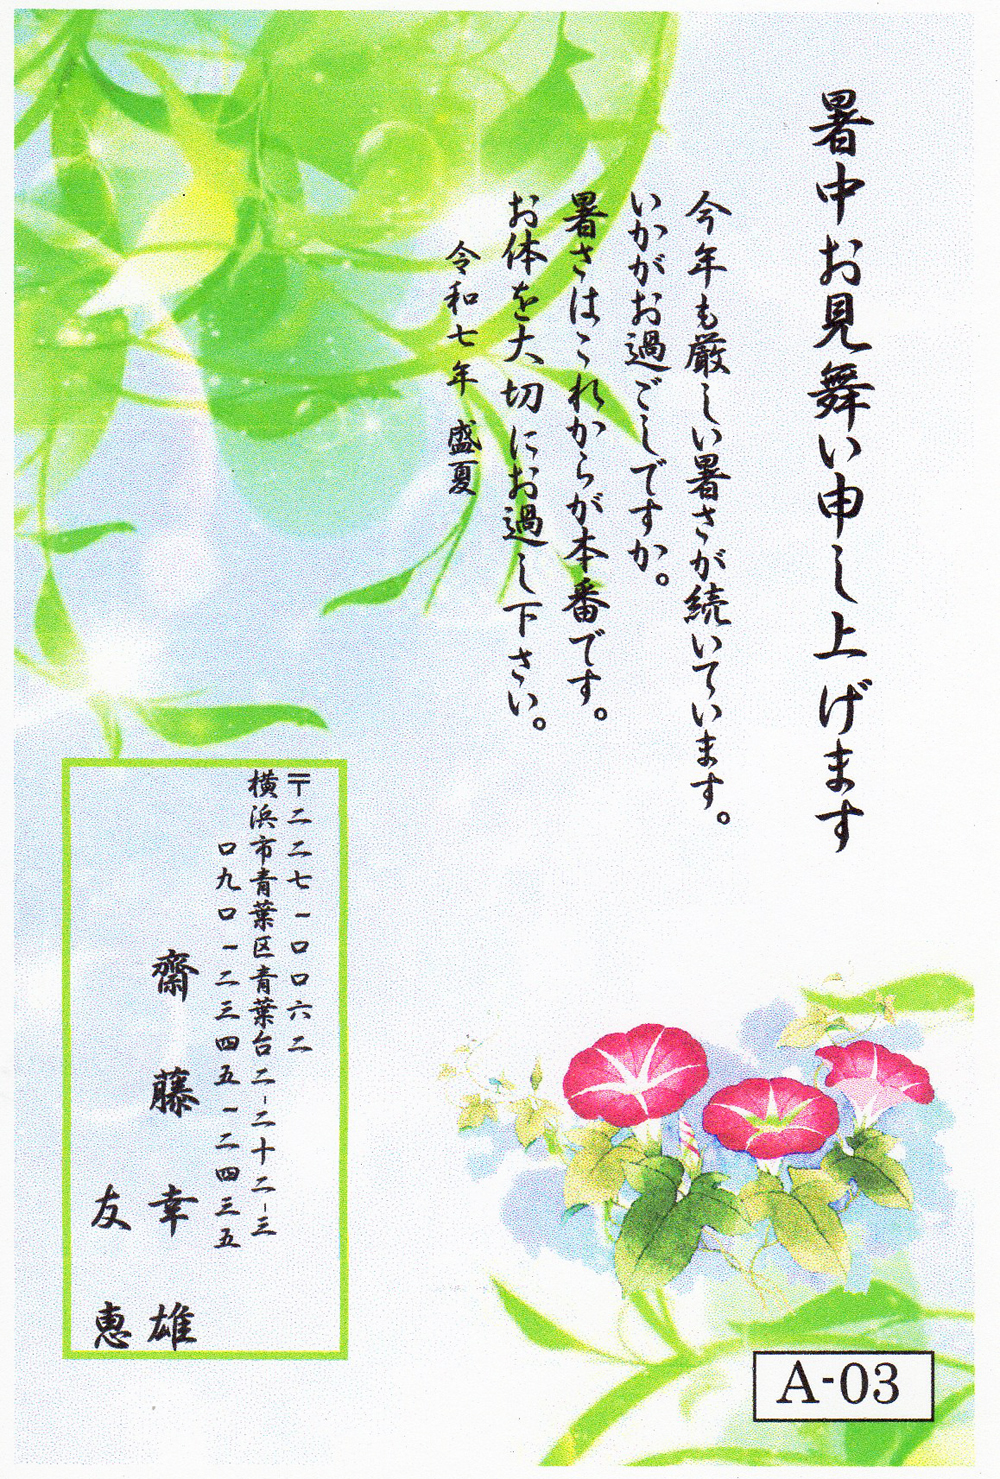 暑中お見舞い申し上げます
今年も厳しい暑さが続いています。
いかがお過ごしですか。
暑さはこれからが本番です。
お体を大切にお過し下さい。
令和七年 盛夏
〒二二七-〇〇六二
横浜市青葉区青葉台二-二十二-三
〇九〇-二三四五-二四三五
齋藤幸雄
友恵
A-03